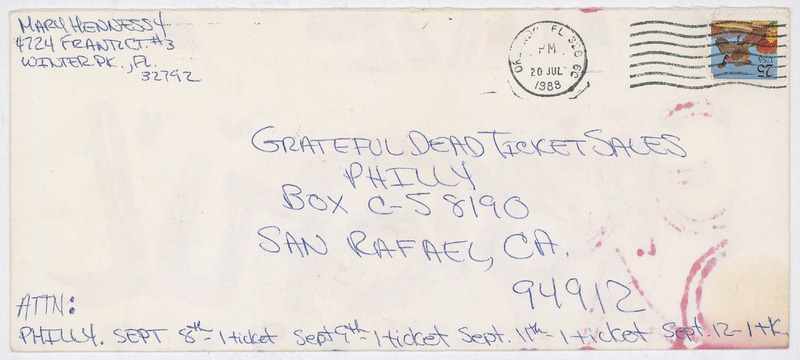 MARY HENNESSY
4724 FRANTZ CT. #3
WINTER PK., FL.
32792
FL 328
PM
20 JUL
1988
25
USA
GRATEFUL DEAD TICKET SALES
PHILLY
BOX C-S 8190
SAN RAFAEL, CA.
94912
ATTN:
PHILLY. SEPT 8th - 1 ticket Sept 9th - 1 ticket Sept. 11th - 1 ticket Sept. 12 - 1 tk